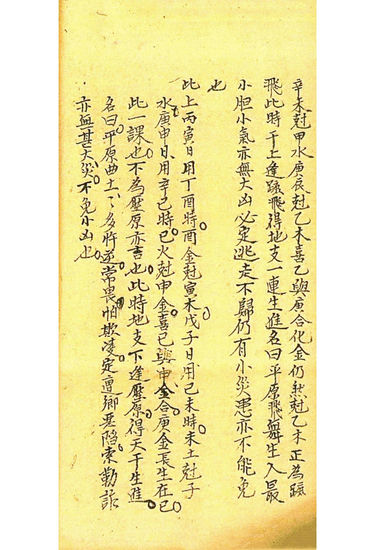 辛未尅甲水庚辰尅乙木喜乙與庚合化金仍然尅乙木正為
飛此時干上逢飛得地支一連生進名曰平原飛舞生人最
小胆小氣亦無大凶必定逃走不歸仍有小災患亦不能免
也
此上丙寅日用丁酉時酉金尅寅木戊子日用己未時未土尅子
水庚申日用辛巳時巳火尅申金喜巳與申金合庚金長生在巳
此一課也不為壓原亦吉也此時地支下逢壓原得天干生進
名曰平原曲土々多將逆常畏怕欺凌定遭鄉陷索勒詐
亦無甚大災不免小凶也